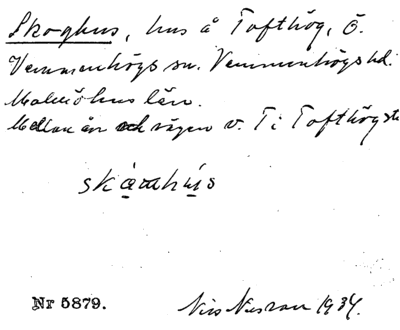 Skoghus, hus å Tofthög, Ö.
Vemmenhögs sn. Vemmenhögs hd.
Malmöhus län.
Mellan ån och vägen v. T i Tofthögs
Nr 5879.
1934.